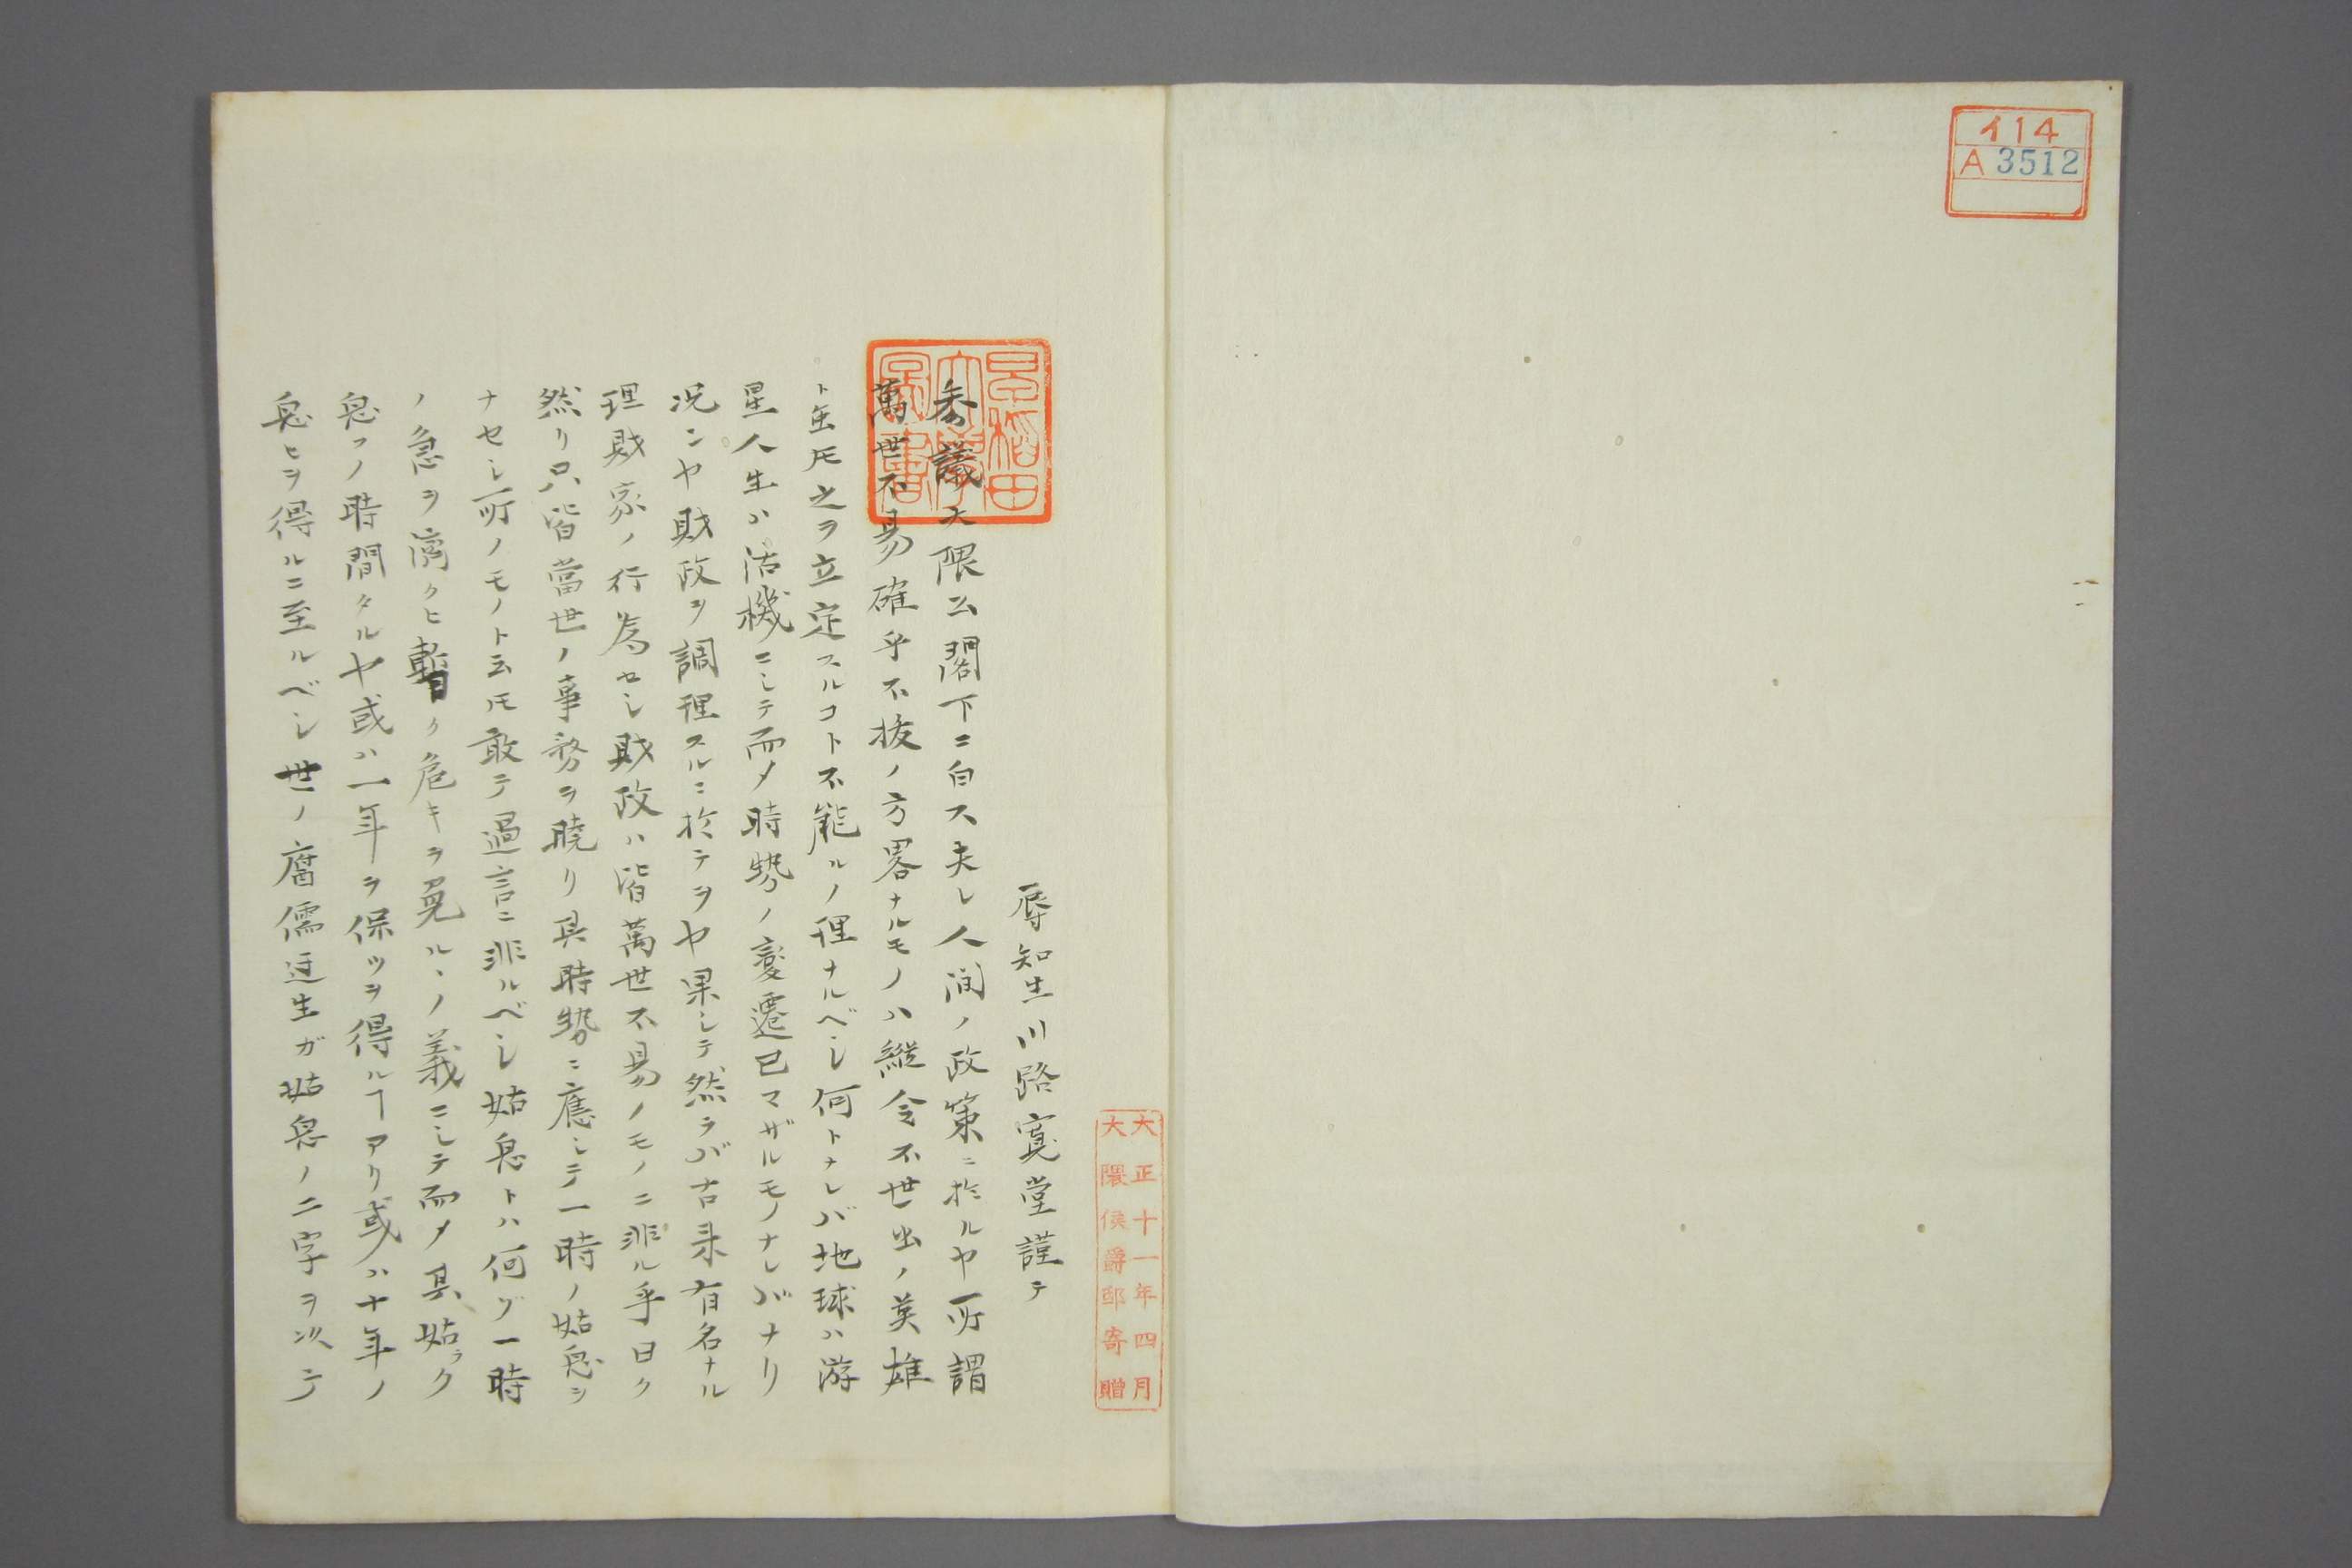 イ14
A 3512
大正十一年四月
大隈侯爵邸寄贈
早稲田
大學
圖書
辱知生川路寛堂謹テ
参議大隈公閣下ニ白ス夫レ人間ノ政策ニ於ルヤ所謂
萬世不易確乎不抜ノ方畧ナルモノハ縦令不世出ノ英雄
ト雖𪜈之ヲ立定スルコト不能ルノ理ナルベシ何トナレバ地球ハ游
星人生ハ活機ニシテ而メ時勢ノ變遷已マザルモノナレバナリ
况ンヤ財政ヲ調理スルニ於テヲヤ果シテ然ラバ古来有名ナル
理財家ノ行為セシ財政ハ皆萬世不易ノモノニ非ル乎曰ク
然リ只皆當世ノ事務ヲ曉リ其時勢ニ應シテ一時ノ姑息ヲ
ナセシ所ノモノト云𪜈敢テ過言ニ非ルベシ姑息トハ何ゾ一時
ノ急ヲ濟クヒ暫ク危キヲ免ルヽノ義ニシテ而メ其姑ラク
息フノ時間タルヤ或ハ一年ヲ保ツヲ得ルヿアリ或ハ十年ノ
息ヒヲ得ルニ至ルベシ世ノ腐儒迂生ガ姑息ノ二字ヲ以テ